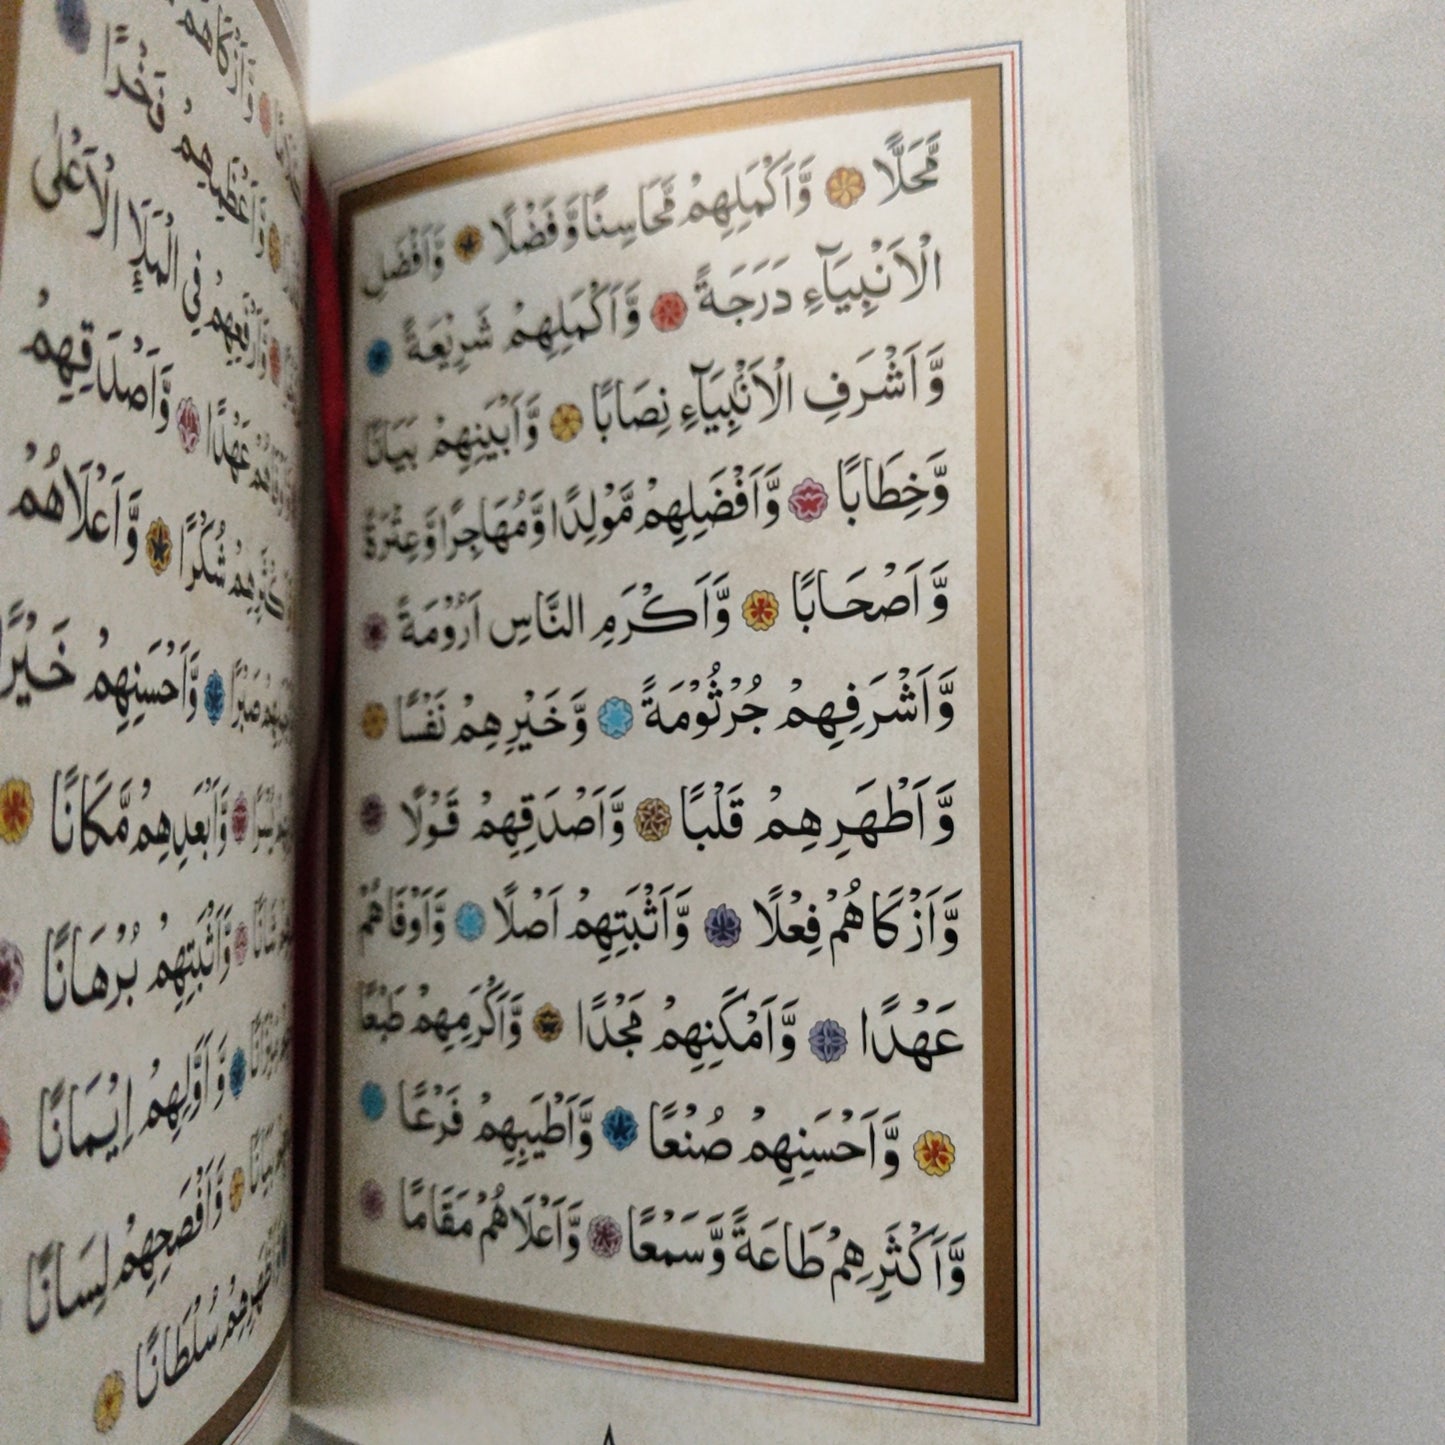 مَّحَلًّا وَّاَكْمَلِهِمْ مَّحَاسِنًا وَّفَضْلًا وَّاَفْضَلِ
الْاَنْبِيَآءِ دَرَجَةً وَّاَكْمَلِهِمْ شَرِيْعَةً
وَّاَشْرَفِ الْاَنْۢبِيَآءِ نِصَابًا وَّاَبْيَنِهِمْ بَيَانًا
وَّخِطَابًا وَّاَفْضَلِهِمْ مَّوْلِدًا وَّمُهَاجِرًا وَّعِتْرَةً
وَّاَصْحَابًا وَّاَكْرَمِ النَّاسِ اَرُوْمَةً
وَّاَشْرَفِهِمْ جُرْثُوْمَةً وَّخَيْرِهِمْ نَفْسًا
وَّاَطْهَرِهِمْ قَلْبًا وَّاَصْدَقِهِمْ قَوْلًا
وَّاَزْكَاهُمْ فِعْلًا وَّاَثْبَتِهِمْ اَصْلًا وَّاَوْفَاهُمْ
عَهْدًا وَّاَمْكَنِهِمْ مَجْدًا وَّاَكْرَمِهِمْ طَبْعًا
وَّاَحْسَنِهِمْ صُنْعًا وَّاَطْيَبِهِمْ فَرْعًا
وَّاَكْثَرِهِمْ طَاعَةً وَّسَمْعًا وَّاَعْلَاهُمْ مَقَامًا
وَّاَزْكَاهُمْ
وَّاَعْظَمِهِمْ فَخْرًا
وَّاَرْفَعِهِمْ فِي الْمَلَاِ الْاَعْلٰى
عَهْدًا وَّاَصْدَقِهِمْ
شُكْرًا وَّاَعْلَاهُمْ
صَبْرًا وَّاَحْسَنِهِمْ خَيْرًا
يُسْرًا وَّاَبْعَدِهِمْ مَّكَانًا
شَانًا وَّاَثْبَتِهِمْ بُرْهَانًا
وَّاَوَّلِهِمْ اِيْمَانًا
وَّاَفْصَحِهِمْ لِسَانًا
سُلْطَانًا